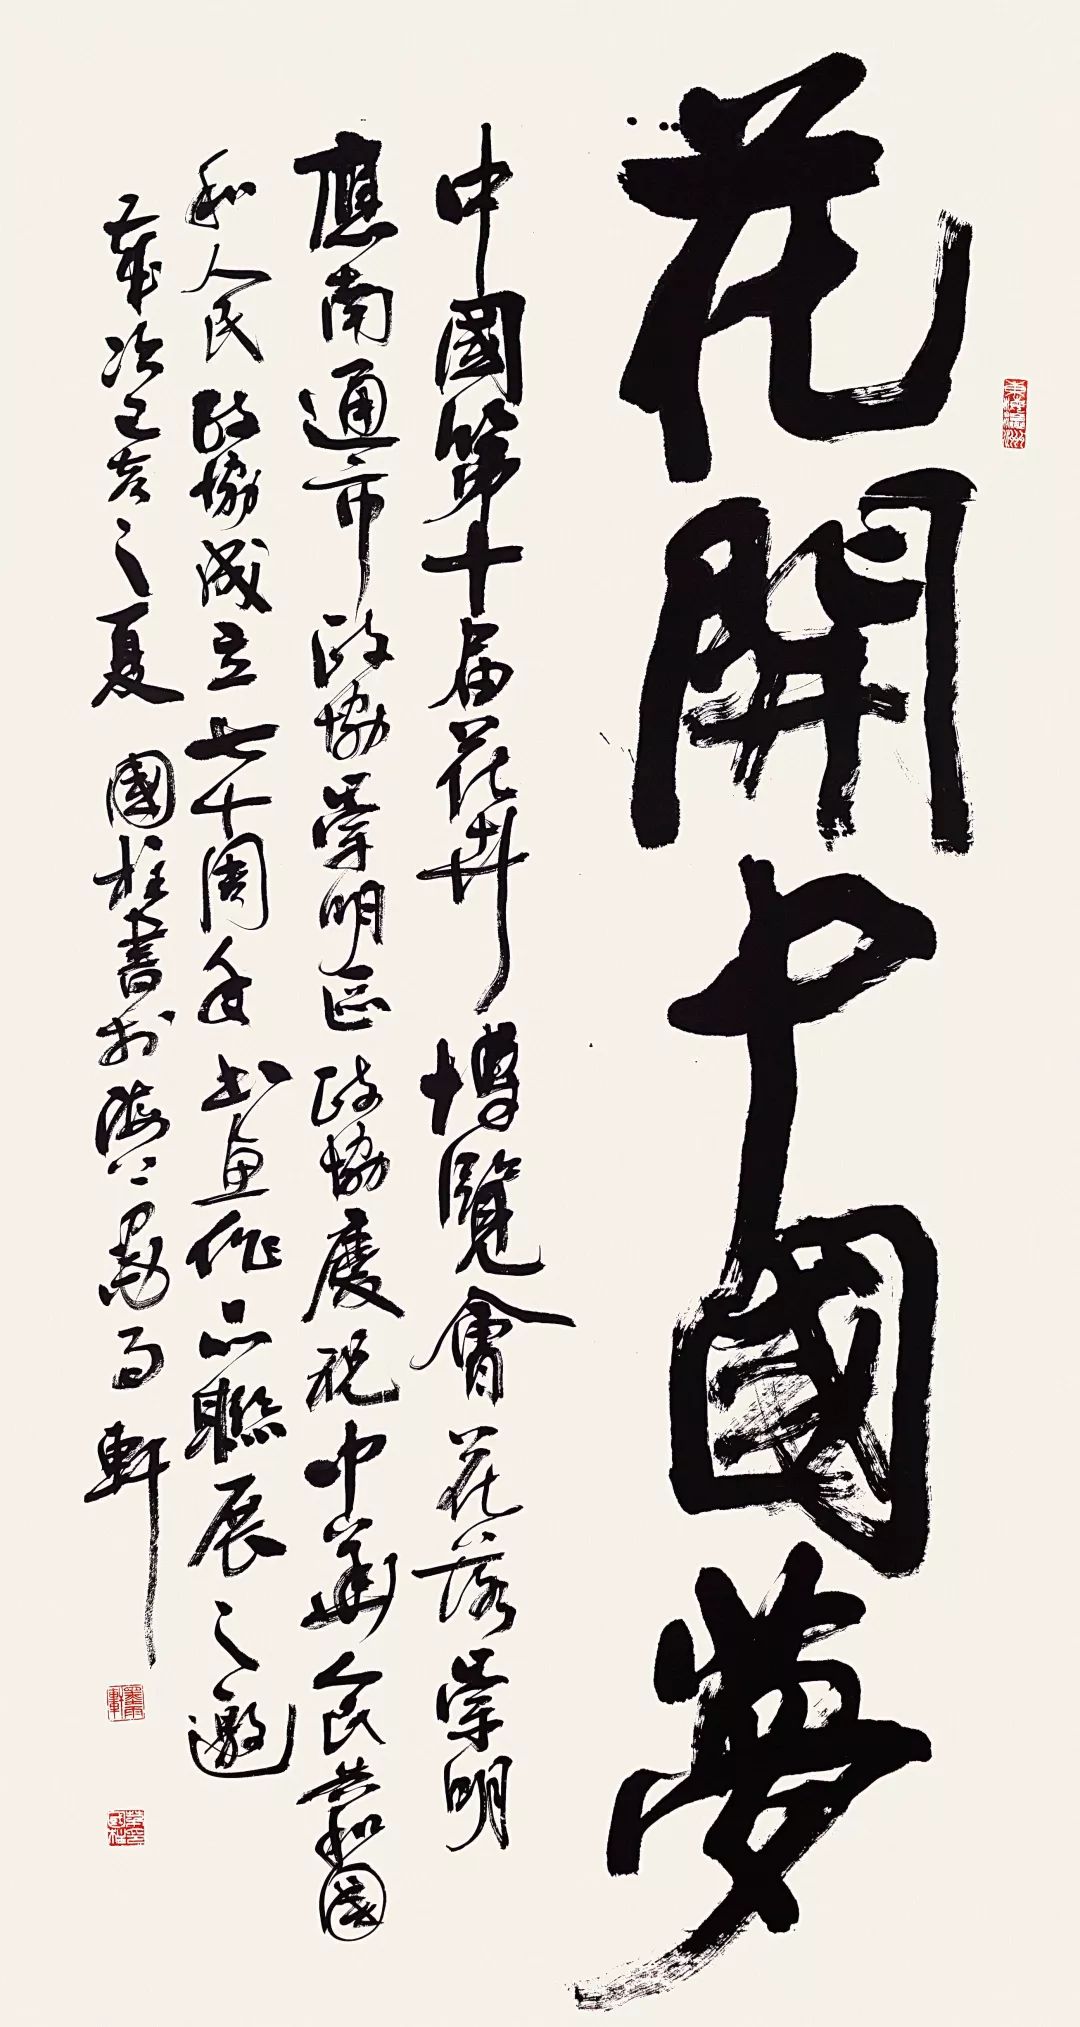 花開中國夢
中國第十届花卉博覽會花落崇明
應南通市政協崇明區政協慶祝中華人民共和國
和人民政協成立七十周年書画作品聯展之邀
歲次己亥之夏 國柱書於海上墨雨軒